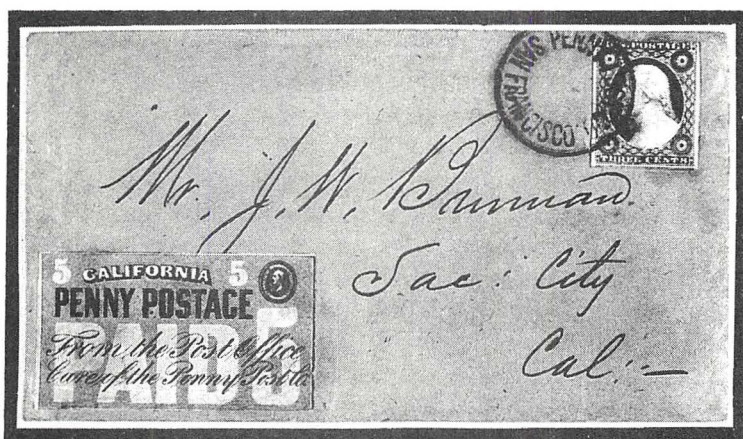 SAN FRANCISCO
POSTAGE
THREE CENTS
Mr. J. W.
Sac: City
Cal:—
5 CALIFORNIA 5
PENNY POSTAGE
PAID 5
From the Post Office
Care of the Penny Post Co.